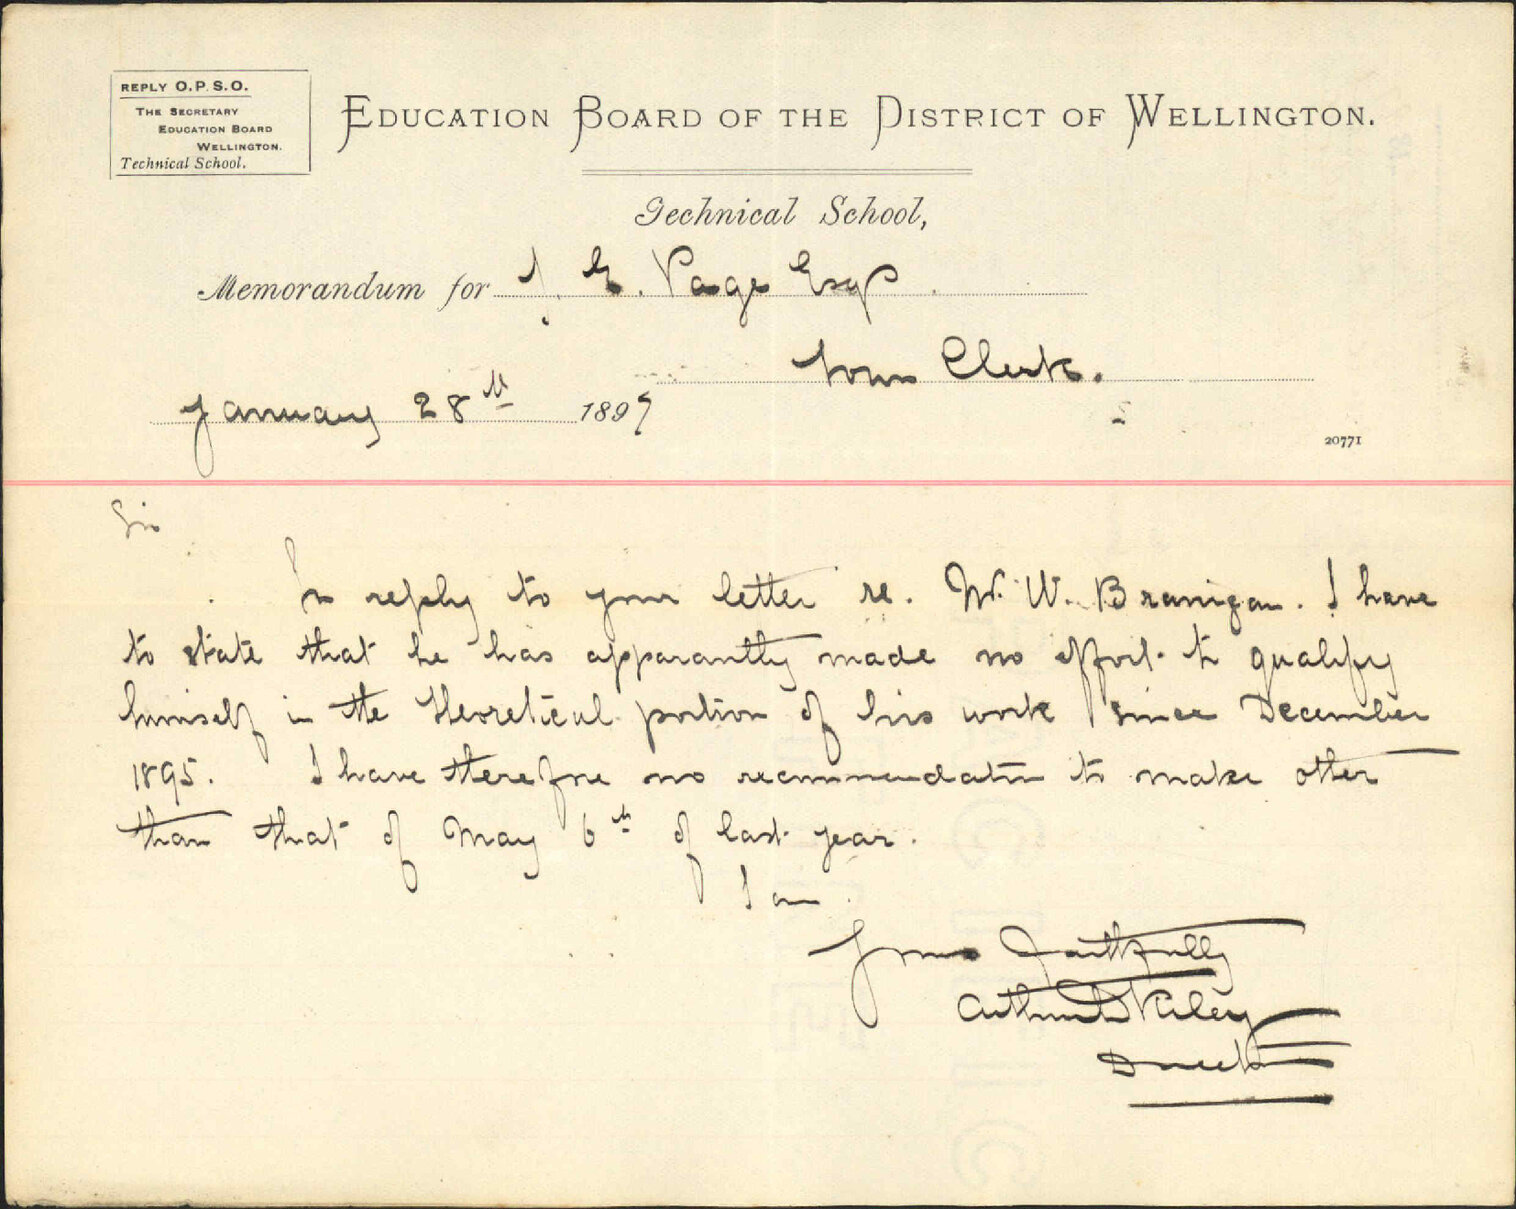 REPLY O.P.S.O.
THE SECRETARY
EDUCATION BOARD
WELLINGTON.
Technical School.
EDUCATION BOARD OF THE DISTRICT OF WELLINGTON.
Technical School,
Memorandum for J. E. Page Esqr.
Town Clerk.
January 28th 1897
20771
Sir
In reply to your letter re. W. W. Branigan. I have
to state that he has apparantly made no effort to qualify
himself in the theoretical portion of his work since December
1895. I have therefore no recommendation to make other
than that of May 6th of last year.
I am
Yours faithfully
Arthur D Riley
Director